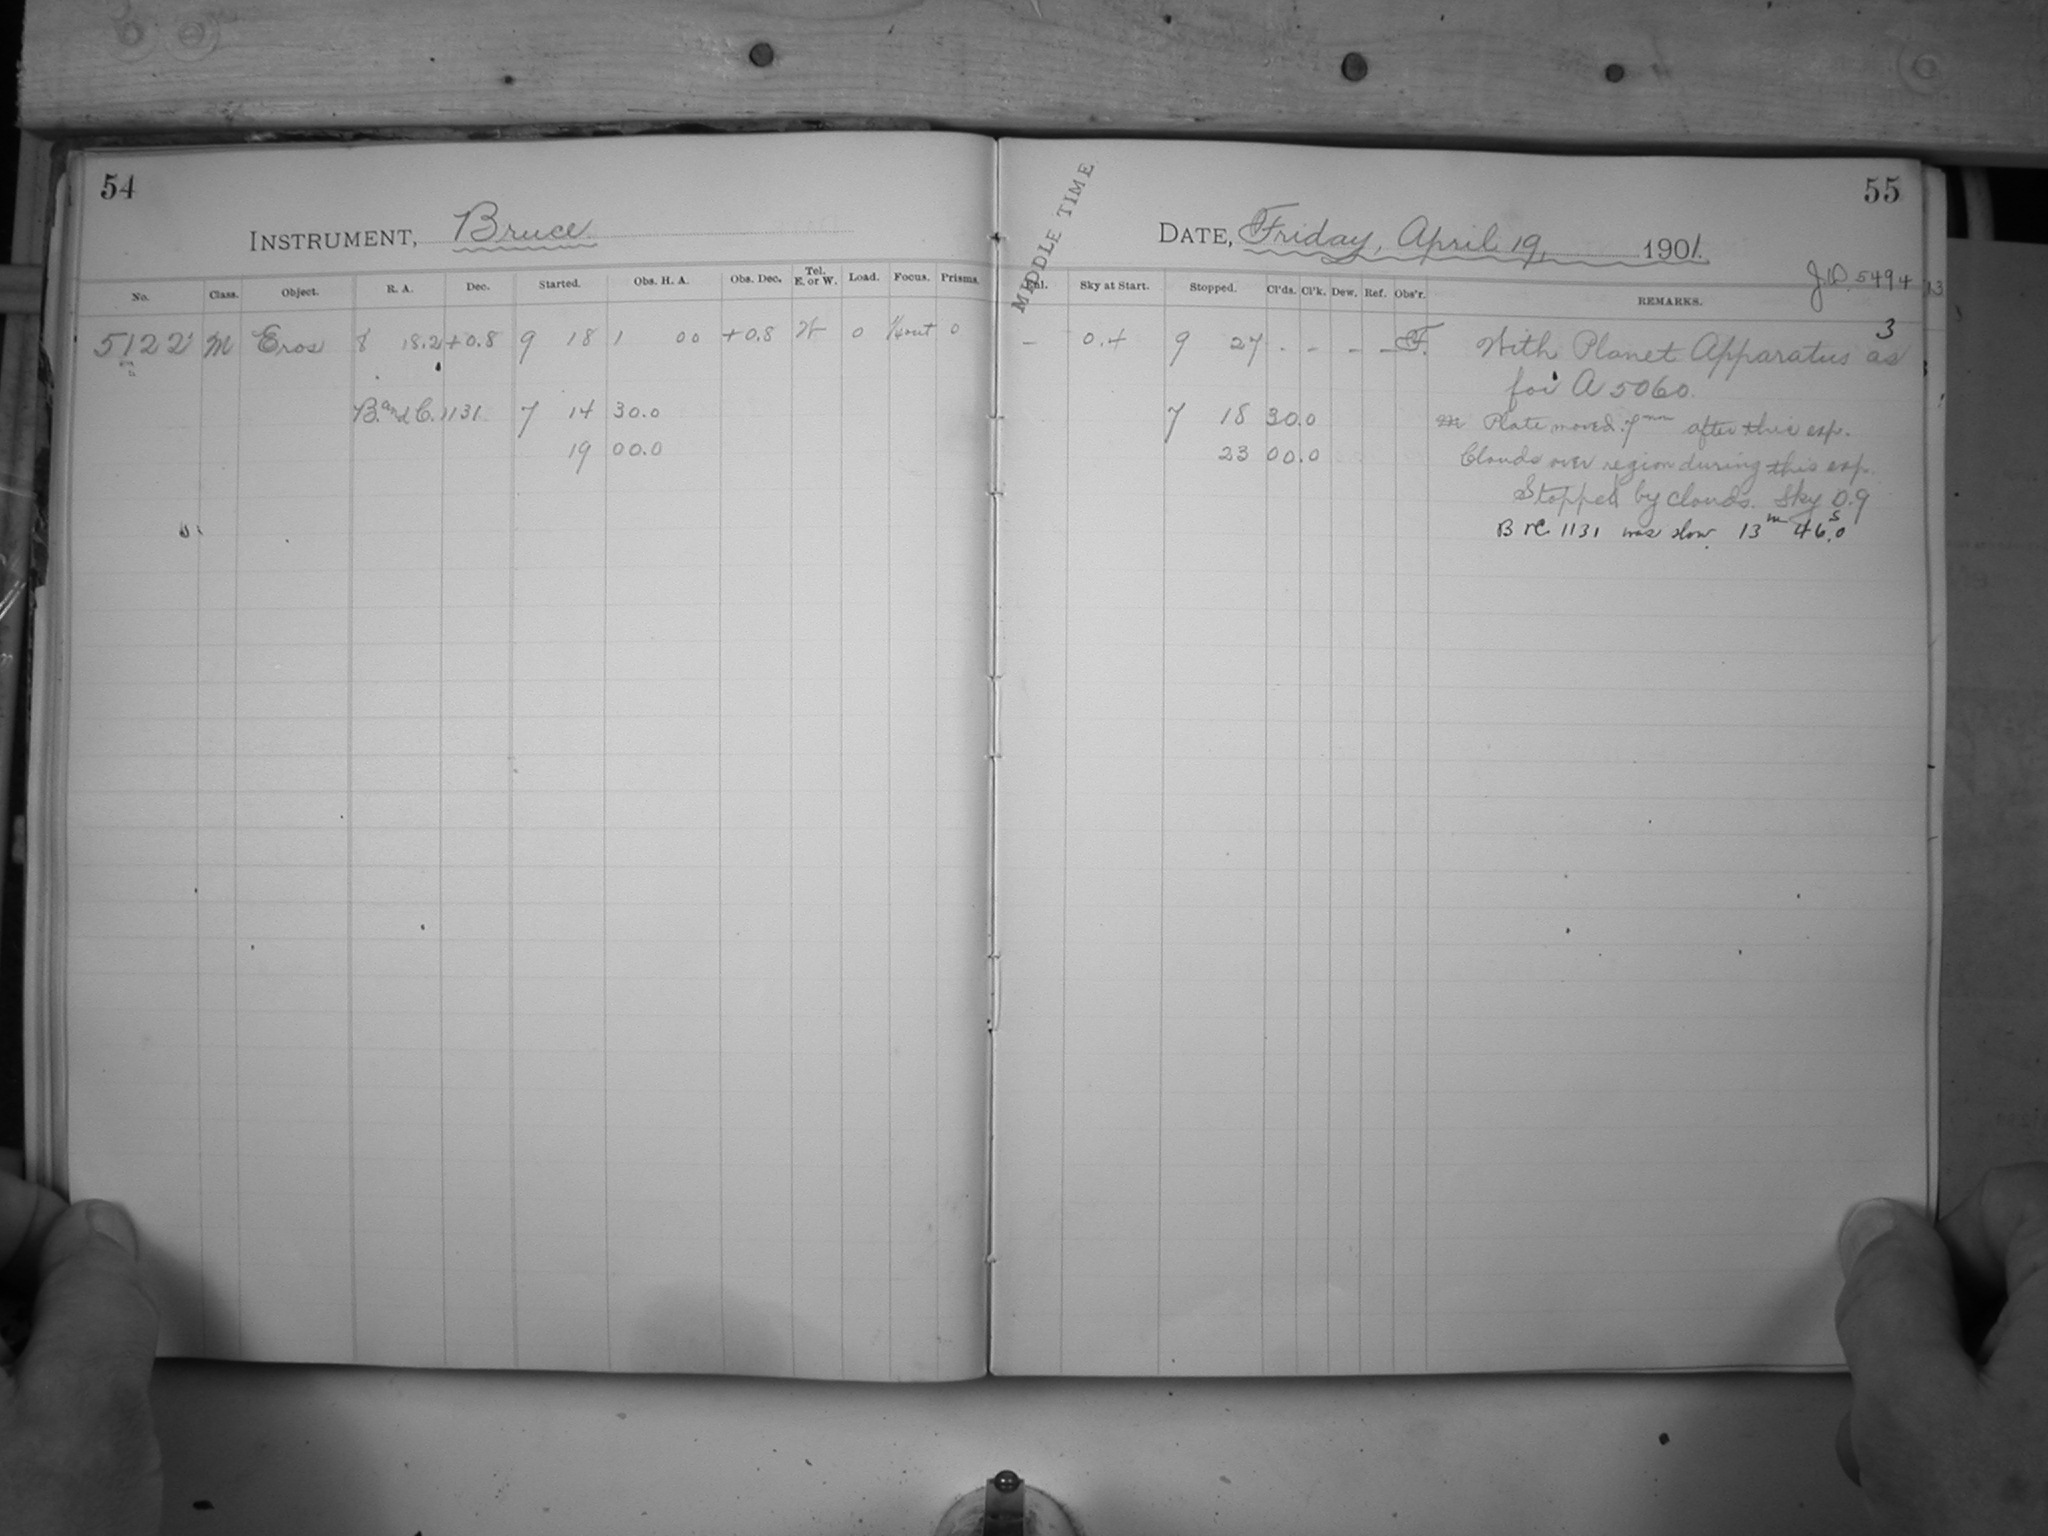 54
INSTRUMENT, Bruce.
No. Class. Object. R. A. Dec. Started. Obs. H. A. Obs. Dec. Tel. E. or W. Load. Focus. Prisms.
5122 M Eros 8 18.2 +0.8 9 18 1 00 +0.8 W 0 0
B. and C. 1131. 7 14 30.0
19 00.0
55
MIDDLE TIME
DATE, Friday, April 19, 1901.
J.D. 5494
13
Sky at Start. Stopped. Cl'ds. Cl'k. Dew. Ref. Obs'r. REMARKS.
3
– 0.4 9 27 - - - - F. With Planet Apparatus as
for A 5060.
7 18 30.0 Plate moved .7mm after this exp.
23 00.0 Clouds over region during this exp.
Stopped by clouds. Sky 0.9
B & C 1131 was slow 13m 46s.0